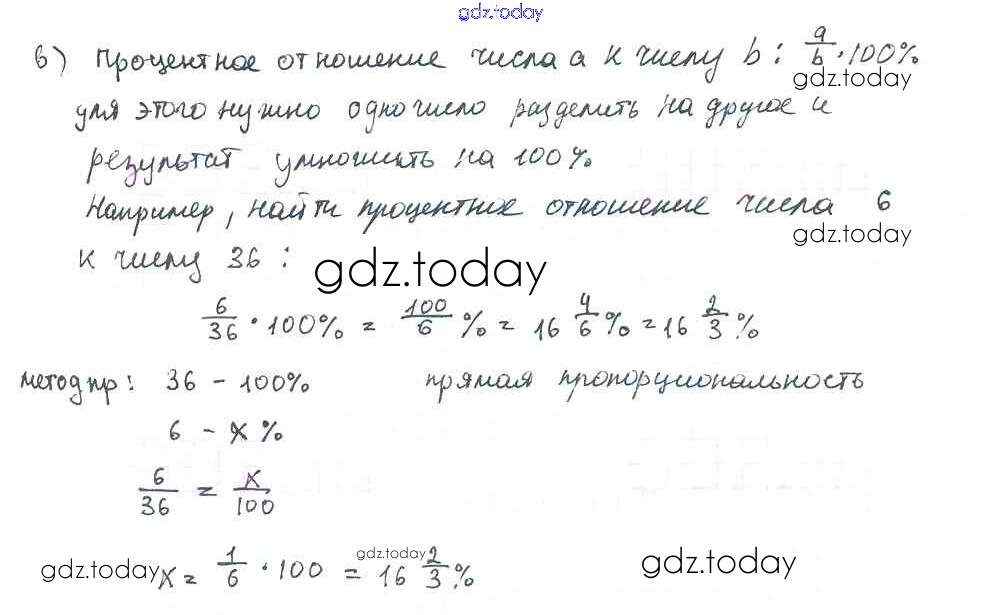 gdz.today
в) Процентное отношение числа a к числу b : a/b · 100%
gdz.today
для этого нужно одно число разделить на другое и
результат умножить на 100%
Например, найти процентное отношение числа 6
gdz.today
к числу 36 :
gdz.today
6/36 · 100% = 100/6 % = 16 4/6 % = 16 2/3 %
метод пр: 36 – 100% прямая пропорциональность
6 – x %
6/36 = x/100
gdz.today
x = 1/6 · 100 = 16 2/3 %
gdz.today
gdz.today